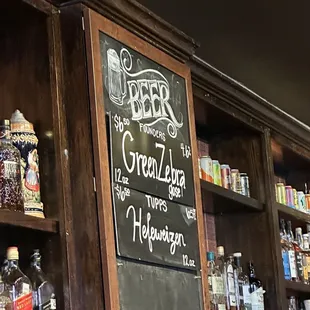 BEER
$6.00 FOUNDERS 4.62
Green Zebra
12oz gose
$6.00 TUPPS
Hefeweizen
12oz